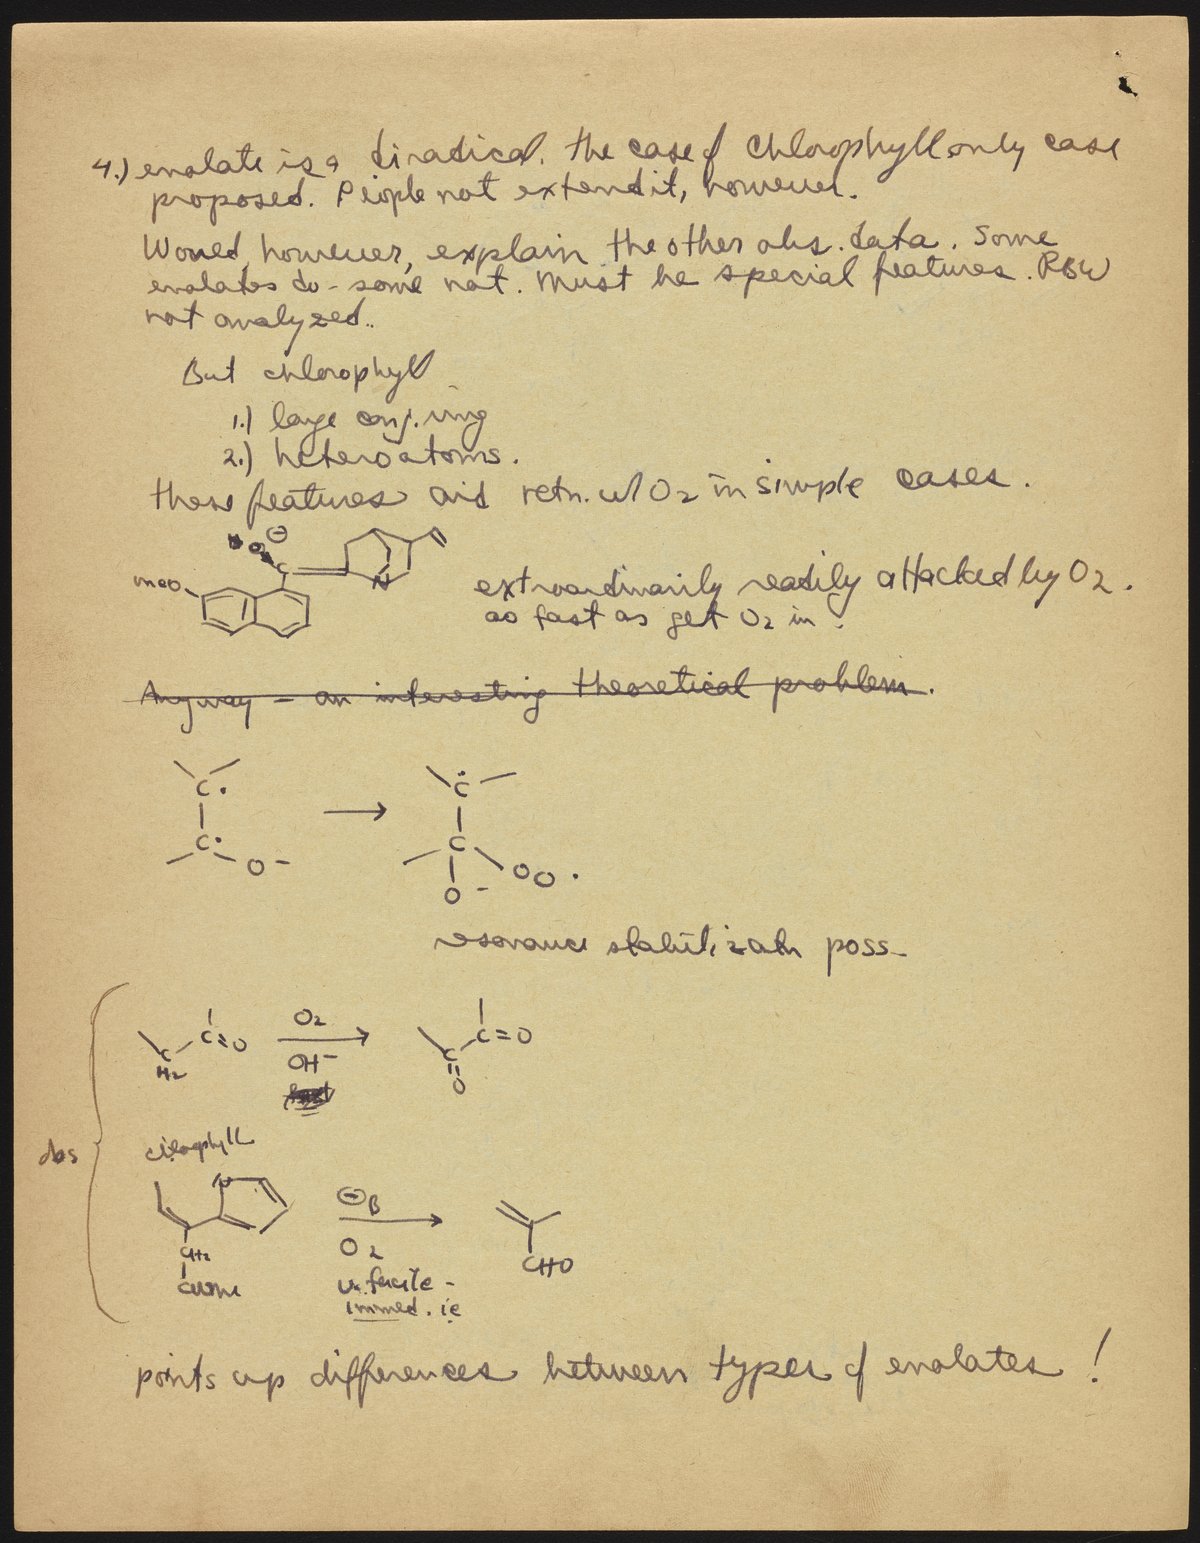 4.) enolate is a diradical. The case of Chlorophyll only case
proposed. People not extend it, however.
Would, however, explain the other obs. data. Some
enolates do - some not. Must be special features. RBW
not analyzed..
But chlorophyll
1.) large conj. ring
2.) heteroatoms.
these features aid retn. w/ O2 in simple cases.
O ⊖
C
N
MeO
extraordinarily readily attacked by O2.
as fast as get O2 in.
Anyway - an interesting theoretical problem.
C· → C·
C· C
O - OO ·
O -
resonance stabilizatn poss-
C=O O2 C=O
C OH- C
H2 O
obs
chlorophyll
N ⊖B
CH2 O2 CHO
v. facile -
immed. ie
points up differences between types of enolates!